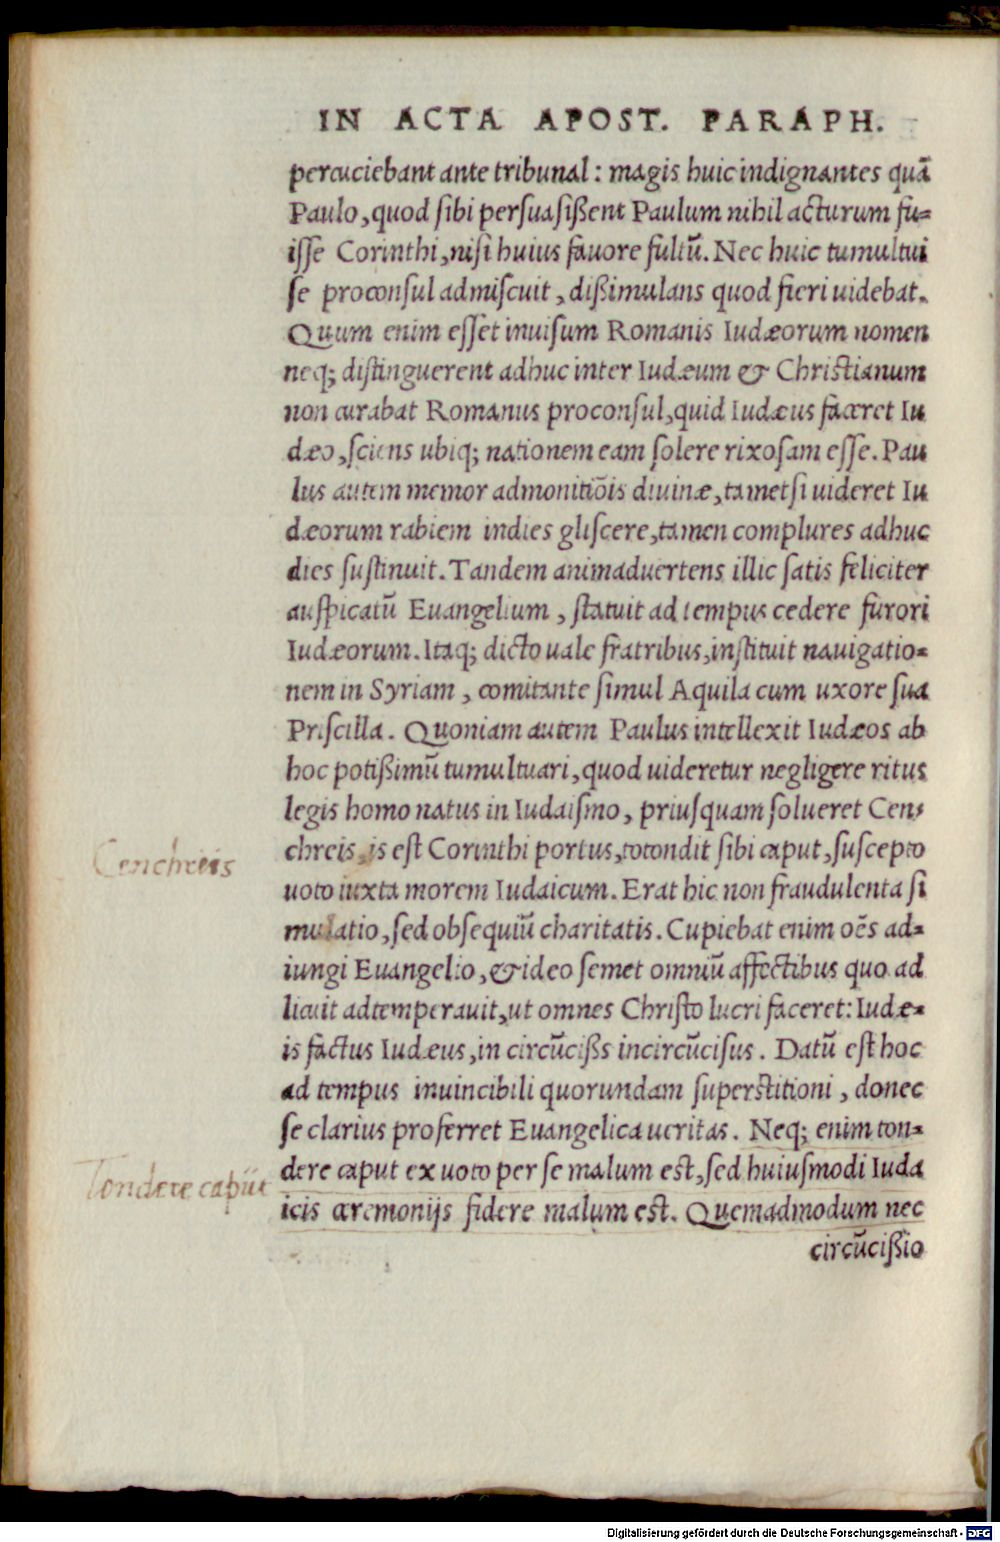 IN ACTA APOST. PARAPH.
percuciebant ante tribunal : magis huic indignantes quā
Paulo, quod ſibi perſuaſißent Paulum nihil acturum fu-
iſſe Corinthi, niſi huius fauore fultū. Nec huic tumultui
ſe proconſul admiſcuit, dißimulans quod fieri uidebat.
Quum enim eſſet inuiſum Romanis Iudæorum nomen
neq; diſtinguerent adhuc inter Iudæum & Chriſtianum
non curabat Romanus proconſul, quid Iudæus faceret Iu
dæo, ſciens ubiq; nationem eam ſolere rixoſam eſſe. Pau
lus autem memor admonitiōis diuinæ, tametſi uideret Iu
dæorum rabiem indies gliſcere, tamen complures adhuc
dies ſuſtinuit. Tandem animaduertens illic ſatis feliciter
auſpicatū Euangelium, ſtatuit ad tempus cedere furori
Iudæorum. Itaq; dicto uale fratribus, inſtituit nauigatio-
nem in Syriam, comitante ſimul Aquila cum uxore ſua
Priſcilla. Quoniam autem Paulus intellexit Iudæos ab
hoc potißimū tumultuari, quod uideretur negligere ritus
legis homo natus in Iudaiſmo, priuſquam ſolueret Cen-
chreis, is eſt Corinthi portus, totondit ſibi caput, ſuſcepto
uoto iuxta morem Iudaicum. Erat hic non fraudulenta ſi
mulatio, ſed obſequiū charitatis. Cupiebat enim oēs ad-
iungi Euangelio, & ideo ſemet omniū affectibus quo ad
licuit adtemperauit, ut omnes Chriſto lucri faceret: Iudæ-
is factus Iudæus, in circūciſis incircūciſus. Datū eſt hoc
ad tempus inuincibili quorundam ſuperſtitioni, donec
ſe clarius proferret Euangelica ueritas. Neq; enim ton-
dere caput ex uoto per ſe malum eſt, ſed huiuſmodi Iuda
icis cæremonijs fidere malum eſt. Quemadmodum nec
circūcißio
Cenchreis
Tondere caput
Digitalisierung gefördert durch die Deutsche Forschungsgemeinschaft - DFG